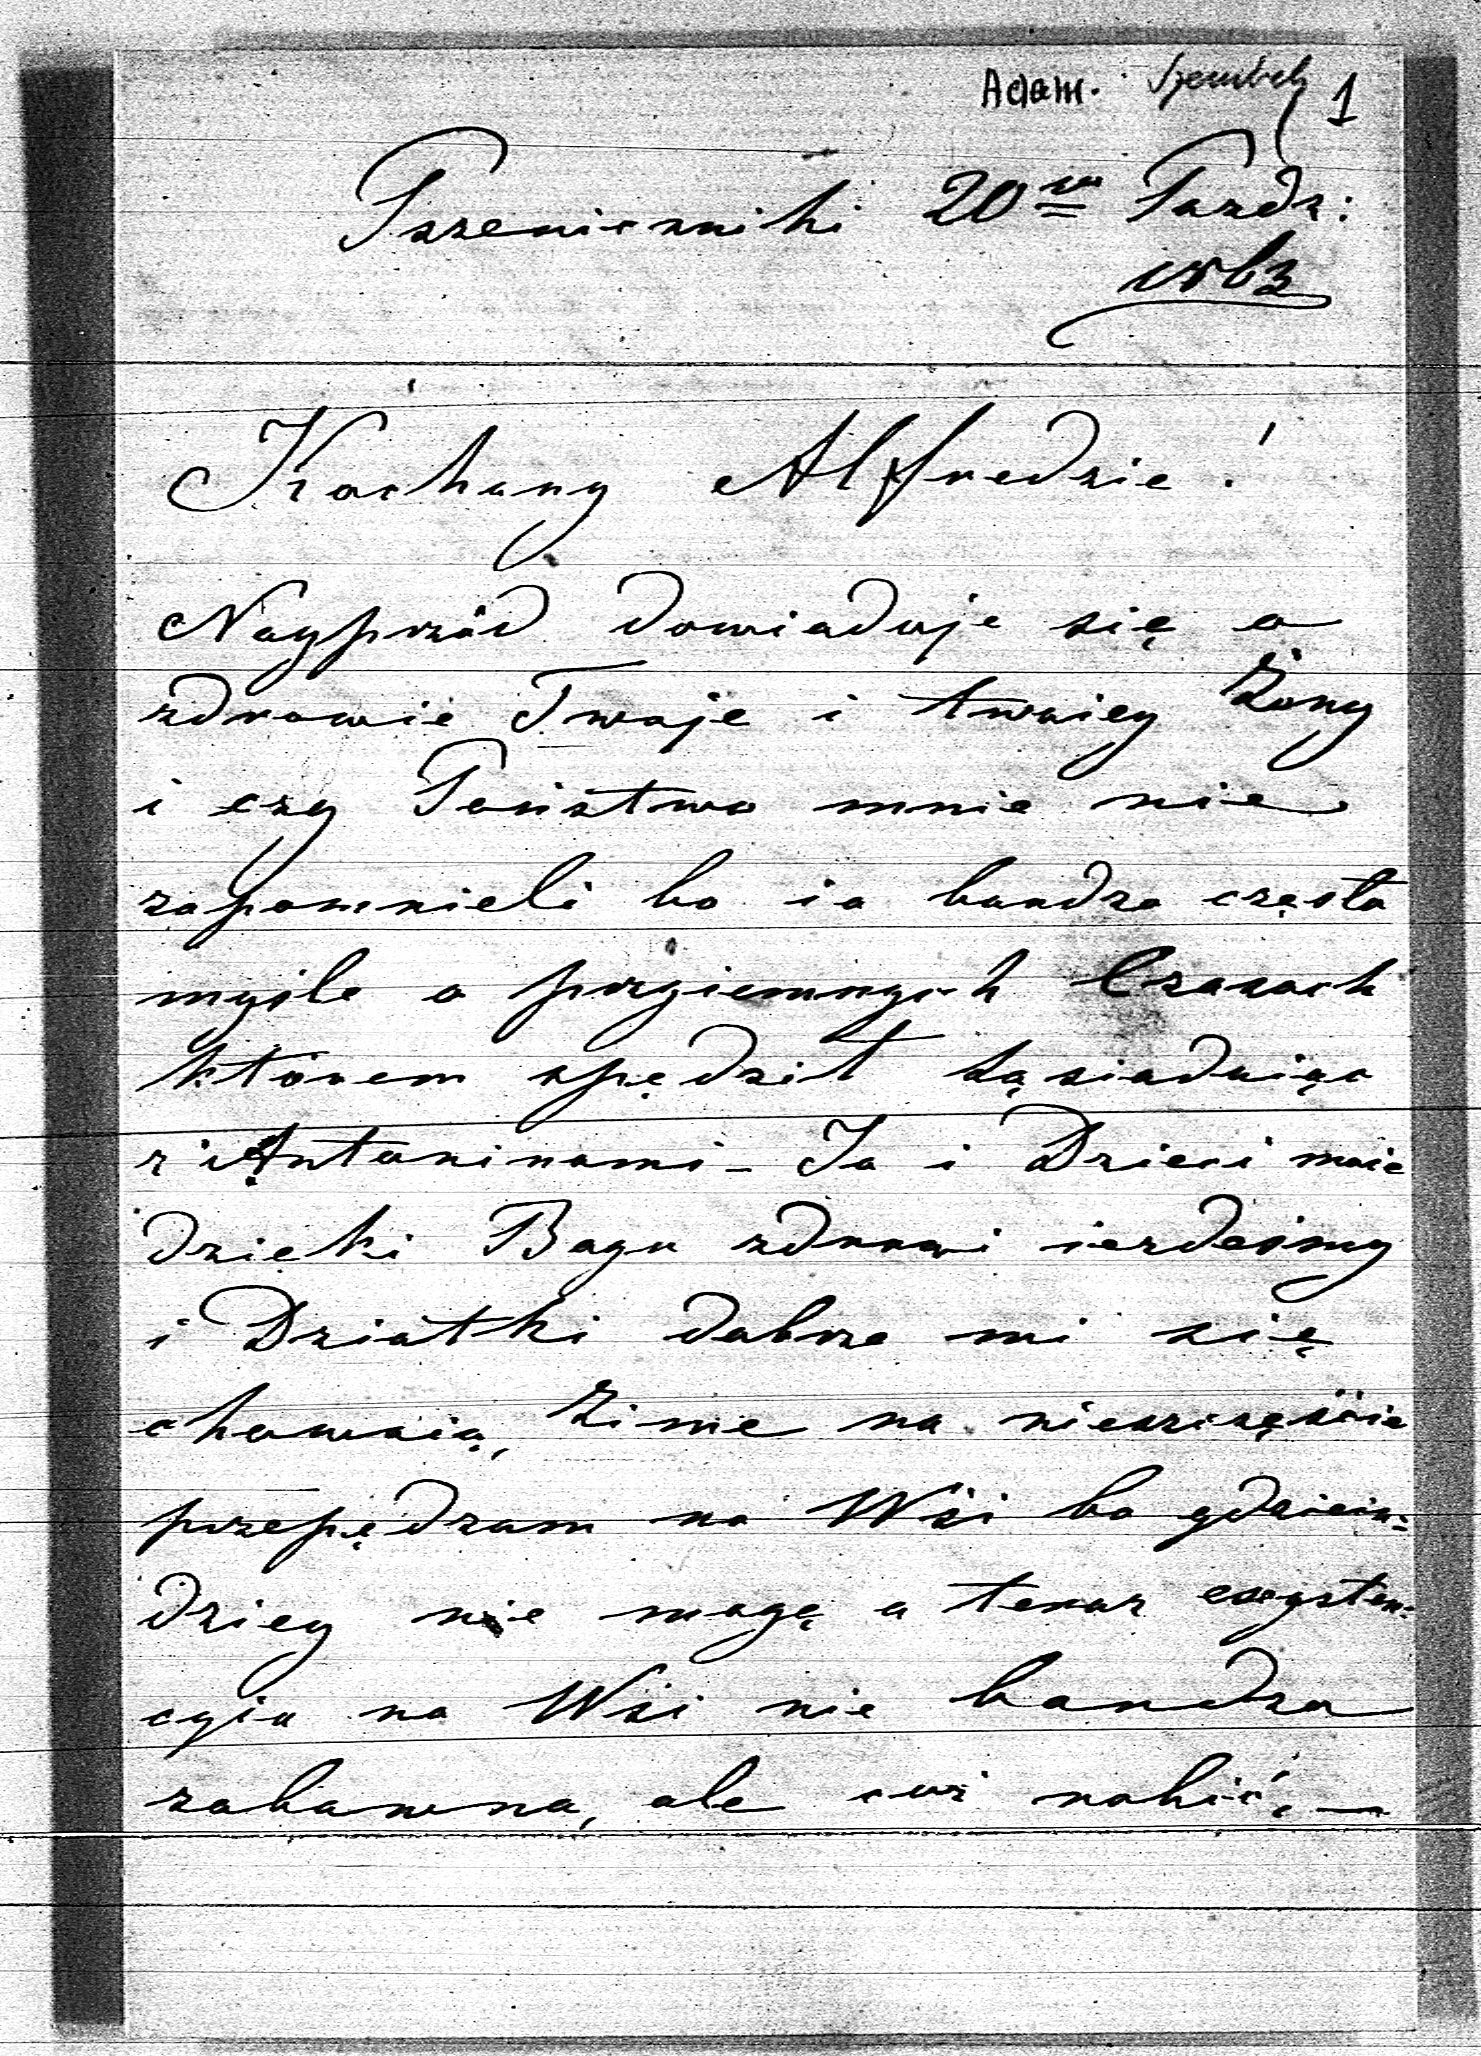 Adam. Szembek 1
Pszeniczniki 20go Paźdz:
1863
Kochany Alfredzie!
Nayprzód dowiaduje się o
zdrowie Twoje i twoiey Żony
i czy Państwo mnie nie
zapomnieli bo ia bardzo często
myśle o przyiemnych Czasach
którem spędził sąsiaduiąc
z Antoninami – Ja i Dzieci moie
dzięki Bogu zdrowi iezdeśmy
i Dziatki dobrze mi się
chowaią, Zime na nieszczęście
przepędzam na Wsi bo gdziein=
dziey nie mogę a teraz egzysten=
cyia na Wsi nie bardzo
zabawna, ale coż robić, –